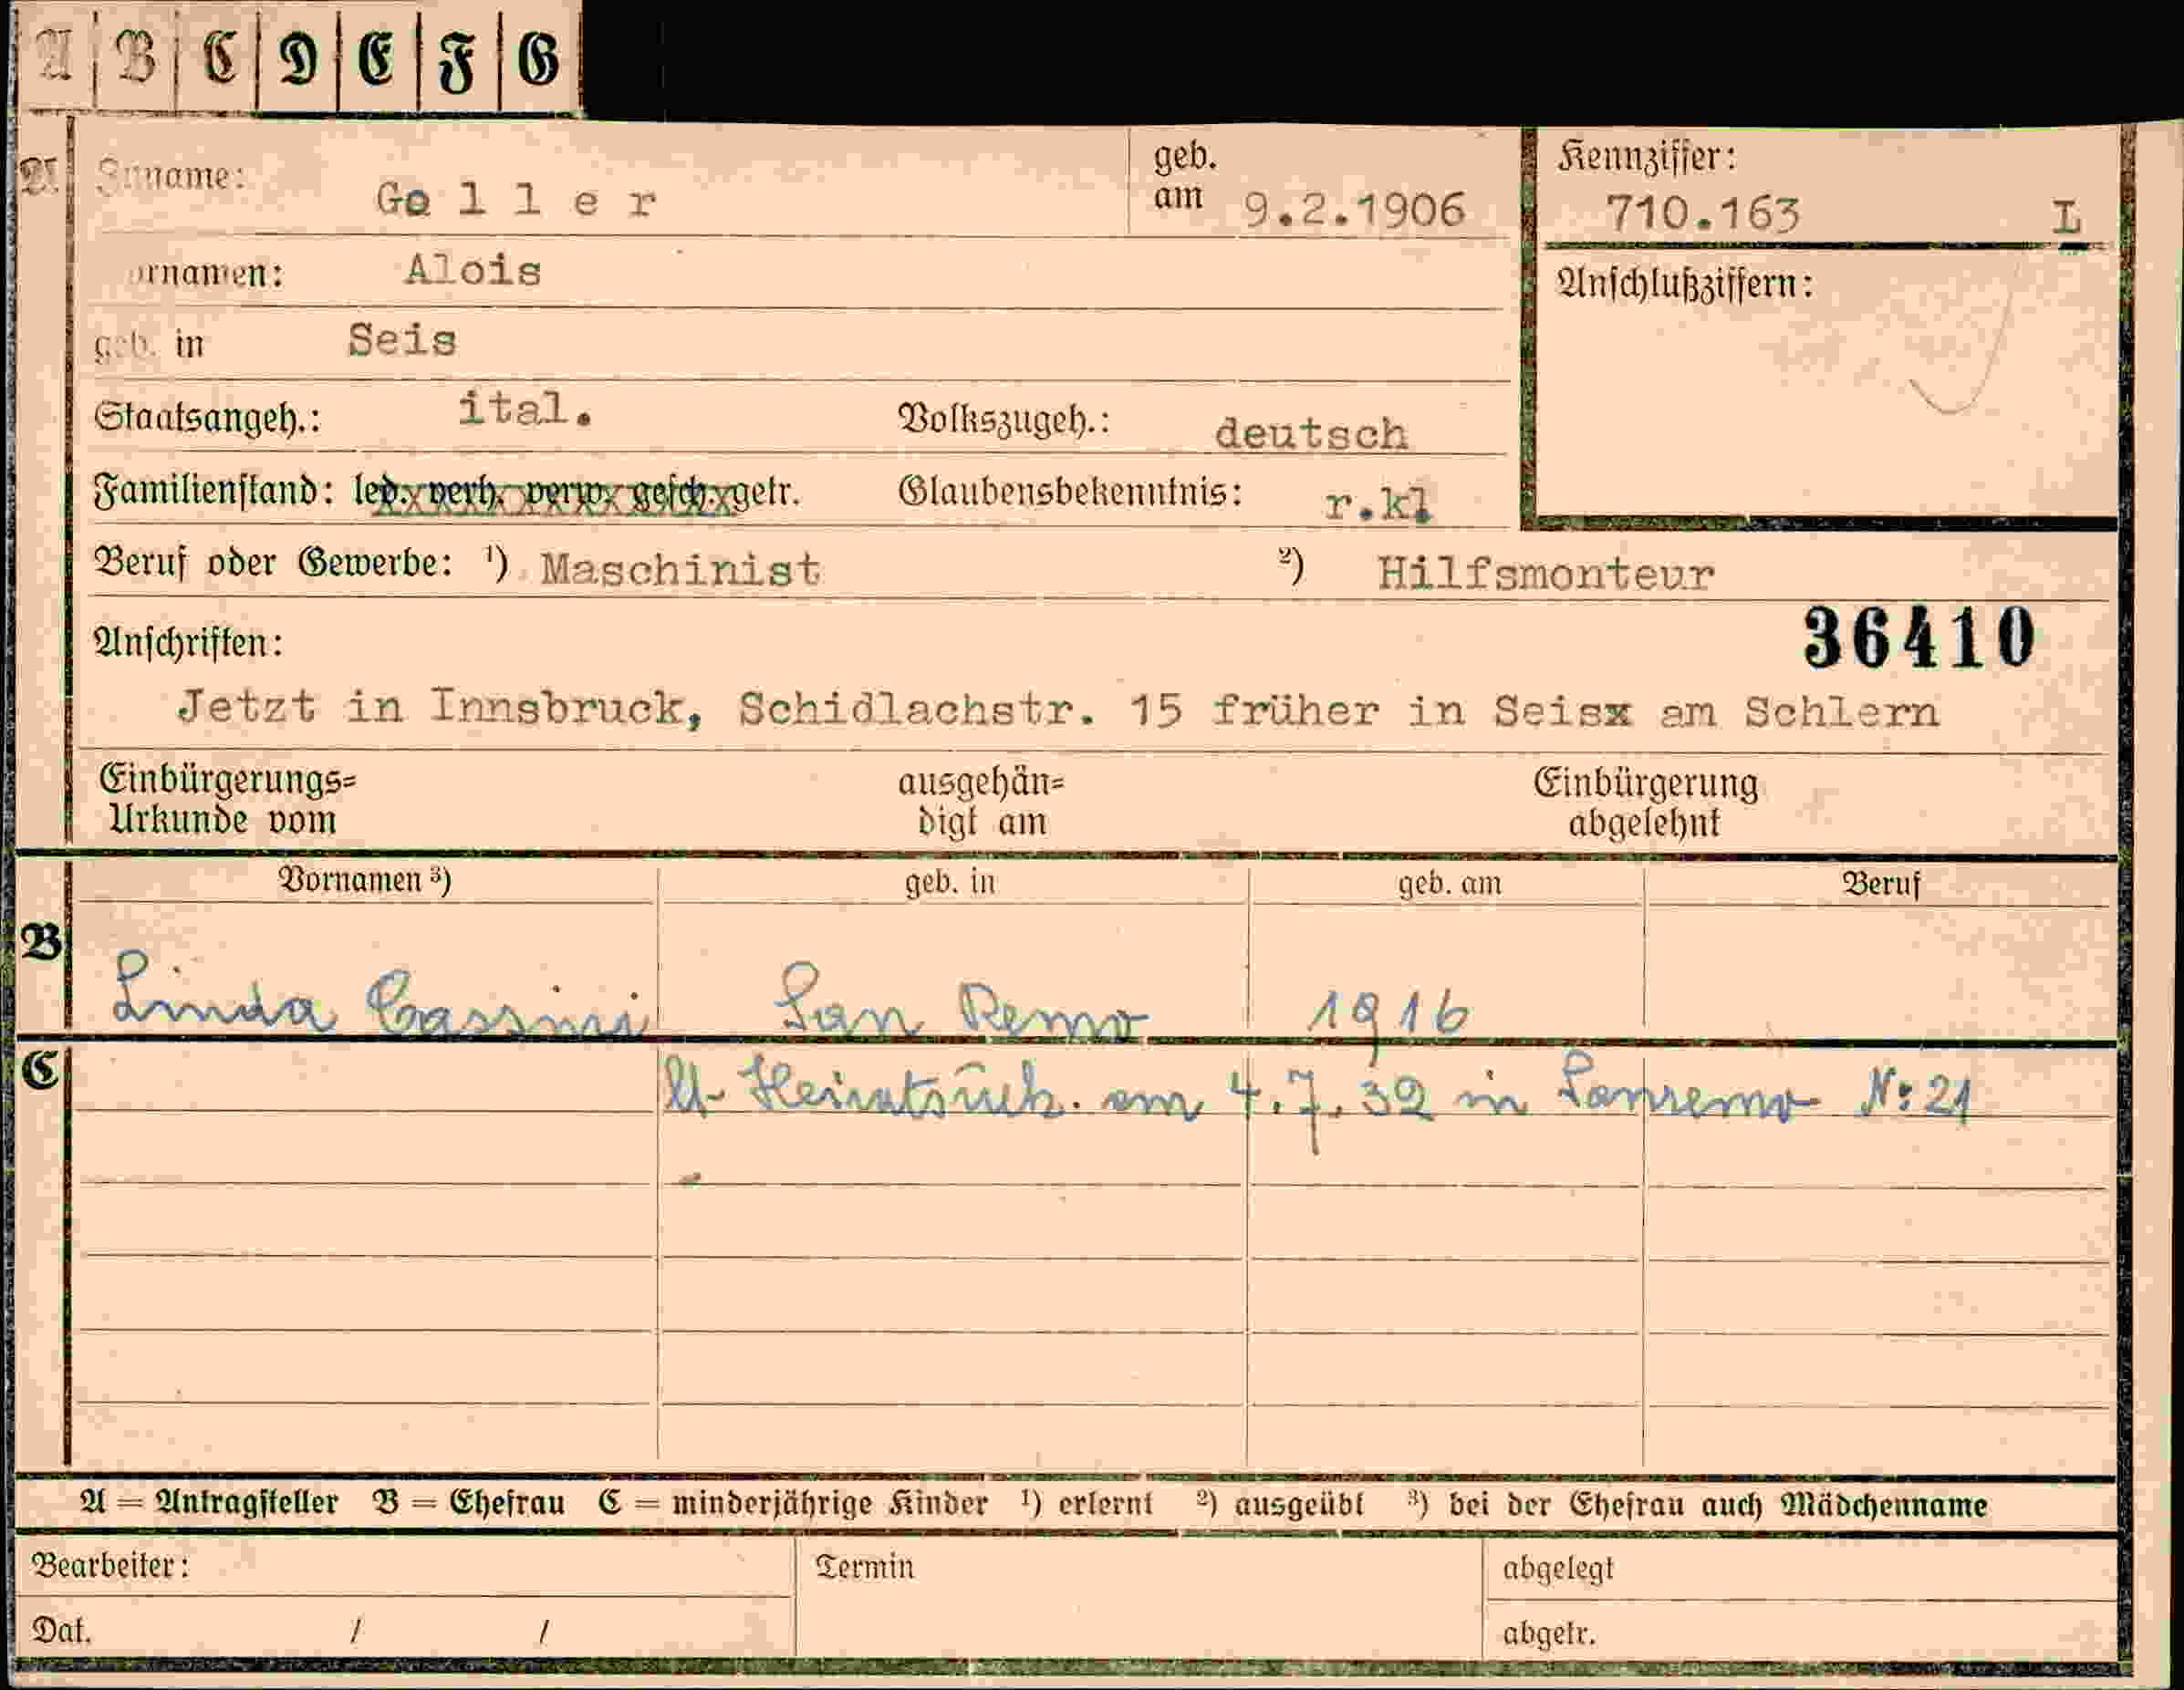 A B C D E F G
A Zuname: Goller geb. am 9.2.1906 Kennziffer: 710.163 L
Vornamen: Alois Anschlußziffern:
geb. in Seis
Staatsangeh.: ital. Volkszugeh.: deutsch
Familienstand: led. verh. verw. gesch. getr. Glaubensbekenntnis: r.kl
Beruf oder Gewerbe: 1) Maschinist 2) Hilfsmonteur
Anschriften: 36410
Jetzt in Innsbruck, Schidlachstr. 15 früher in Seisx am Schlern
Einbürgerungs= ausgehän= Einbürgerung
Urkunde vom digt am abgelehnt
Vornamen 3) geb. in geb. am Beruf
B Linda Cassini San Remo 1916
C am 4.7.39 in Sanremo No: 21
A = Antragsteller B = Ehefrau C = minderjährige Kinder 1) erlernt 2) ausgeübt 3) bei der Ehefrau auch Mädchenname
Bearbeiter: Termin abgelegt
Dat. / / abgetr.